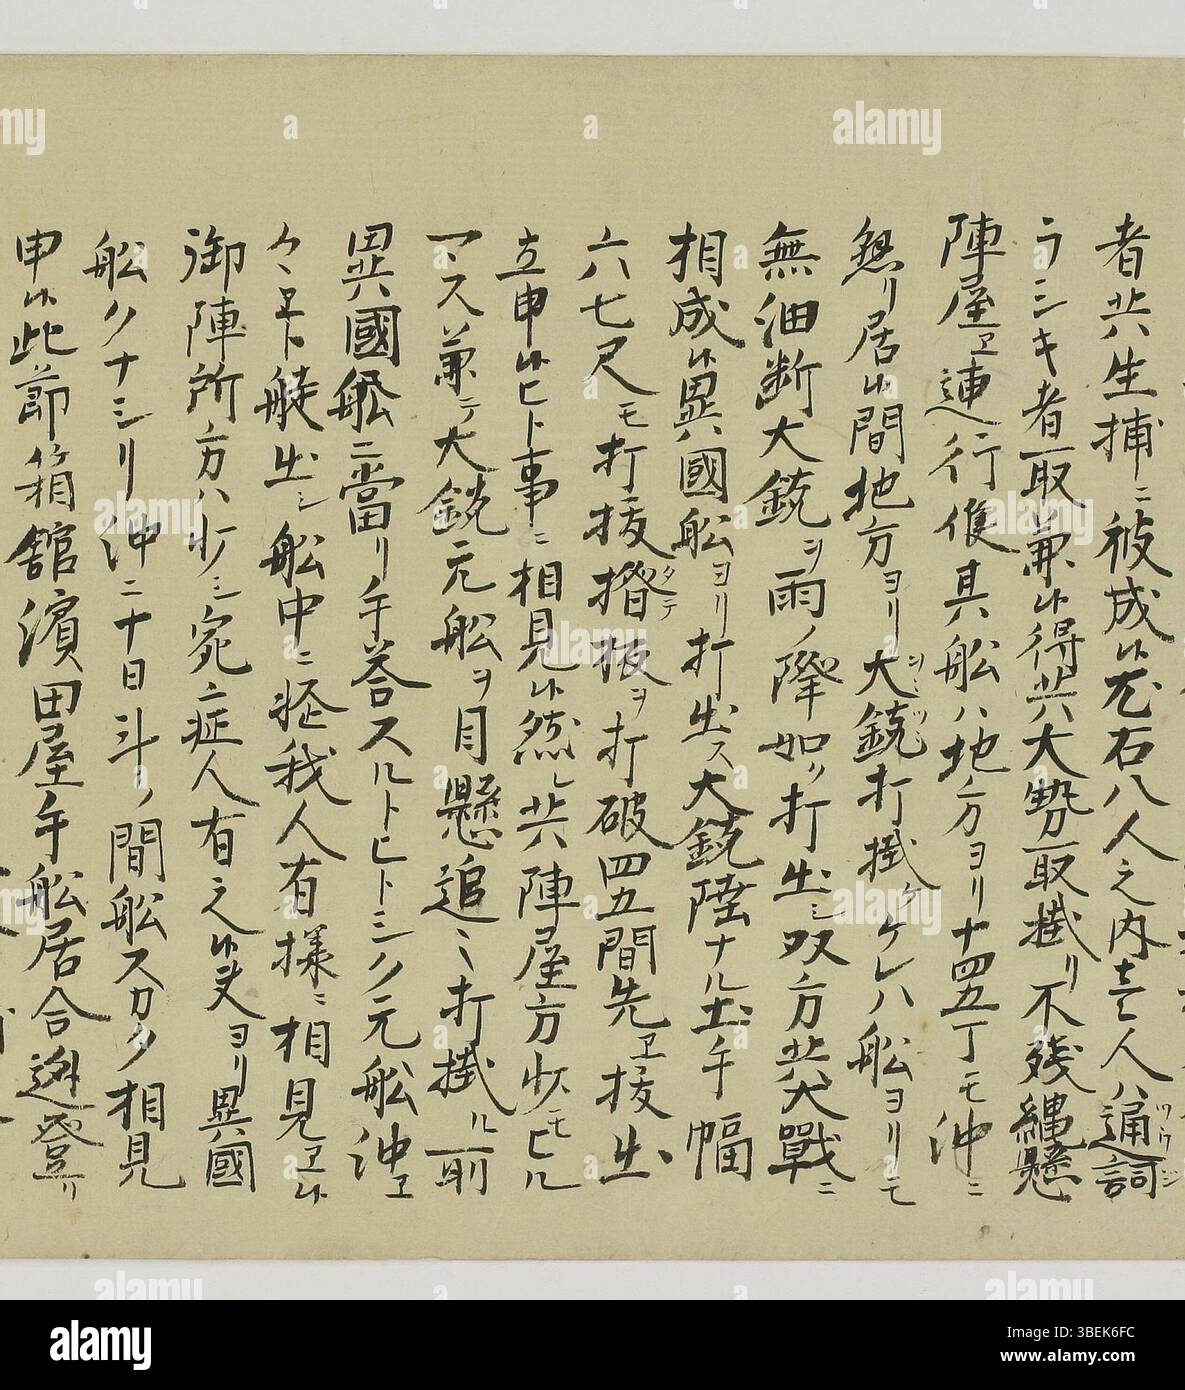 者共生捕ニ被成候左右八人之内壱人ハ通詞ツウジ
ラシキ者取兼候得共大勢取掛リ不残縄懸
陣屋ヱ連行俣其船ハ地方ヨリ十四五丁モ沖ニ
懸リ居候間地方ヨリ大銃打掛ケケレハ船ヨリモ
無油断大銃ヲ雨ノ降如ク打出シ双方共大戦ニ
相成候異国船ヨリ打出ス大銃陸ナル土手幅
六七尺モ打抜楯板ヲ打破四五間先ヱ抜出
立申候ヒト事ニ相見候然レ共陣屋方少モヒル
マス兼テ大銃元船ヲ目懸追〻打掛ル前
異國船ニ當リ手答スルトヒトシク元船沖ヱ
船出シ船中ニ怪我人有様ニ相見ヱ候
御陣所方ハ少シ 人有之候夫ヨリ異國
船ハナシリ沖ニ十日斗ノ間船スカタ相見
申候此節箱館濱田屋手船居合 登リ
alamy
a
a
alamy
alamy
Image ID: 3BEK6FC
www.alamy.com